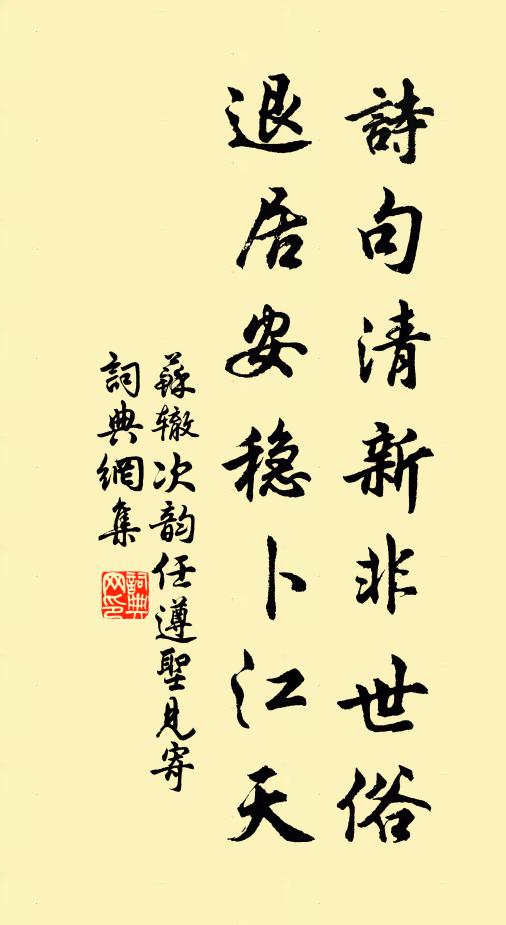 詩句清新非世俗
退居安穏卜江天
蘇辙次韵任遵聖見寄
詞典網集
詞典
网印